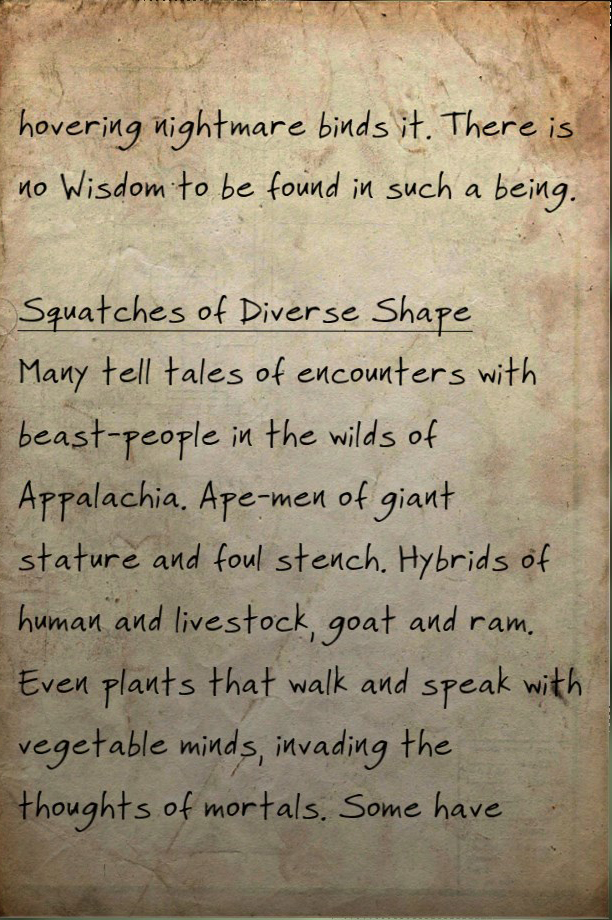 hovering nightmare binds it. There is
no Wisdom to be found in such a being.
Squatches of Diverse Shape
Many tell tales of encounters with
beast-people in the wilds of
Appalachia. Ape-men of giant
stature and foul stench. Hybrids of
human and livestock, goat and ram.
Even plants that walk and speak with
vegetable minds, invading the
thoughts of mortals. Some have